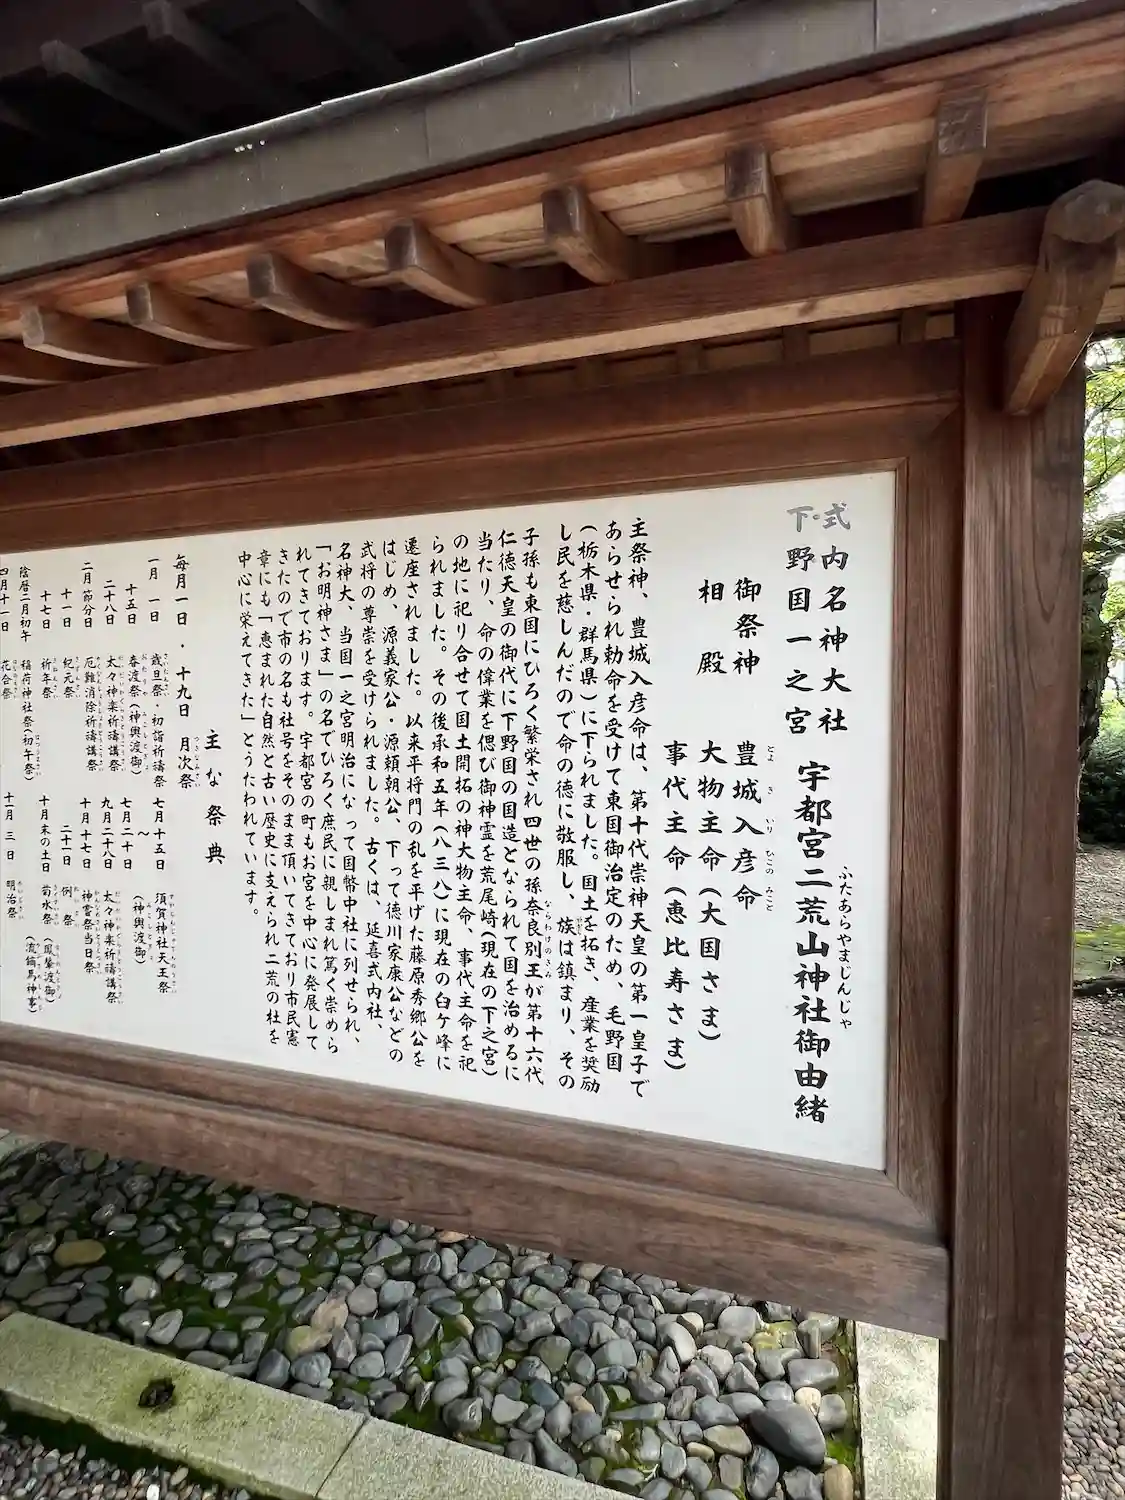 式内名神大社
下野国一之宮
宇都宮二荒山神社御由緒
ふたあらやまじんじゃ
御祭神 豊城入彦命
とよきいりひこのみこと
相殿 大物主命(大国さま)
事代主命(恵比寿さま)
主祭神、豊城入彦命は、第十代崇神天皇の第一皇子で
あらせられ勅命を受けて東国御治定のため、毛野国
(栃木県・群馬県)に下られました。国土を拓き、産業を奨励
し民を慈しんだので命の徳に敬服し、族は鎮まり、その
子孫も東国にひろく繁栄され四世の孫奈良別王が第十六代
ならわけのきみ
仁徳天皇の御代に下野国の国造となられて国を治めるに
当たり、命の偉業を偲び御神霊を荒尾崎(現在の下之宮)
の地に祀り合せて国土開拓の神大物主命、事代主命を祀
られました。その後承和五年(八三八)に現在の臼ケ峰に
遷座されました。以来平将門の乱を平げた藤原秀郷公を
はじめ、源義家公・源頼朝公、下って徳川家康公などの
武将の尊崇を受けられました。古くは、延喜式内社、
名神大、当国一之宮明治になって国幣中社に列せられ、
「お明神さま」の名でひろく庶民に親しまれ篤く崇めら
れてきております。宇都宮の町もお宮を中心に発展して
きたので市の名も社号をそのまま頂いてきており市民憲
章にも「恵まれた自然と古い歴史に支えられ二荒の杜を
中心に栄えてきた」とうたわれています。
主な祭典
毎月一日・十九日 月次祭
つきなみさい
一月一日 歳旦祭・初詣祈禱祭
十五日 春渡祭(神輿渡御)
二十八日 太々神楽祈禱講祭
二月節分日 厄難消除祈禱講祭
十一日 紀元祭
十七日 祈年祭
陰暦二月初午 稲荷神社祭(初午祭)
四月十一日 花会祭
七月十五日 須賀神社天王祭
〜
七月二十日 (神輿渡御)
九月二十八日 太々神楽祈禱講祭
十月十七日 神嘗祭当日祭
二十一日 例祭
十月末の土日 菊水祭(鳳輦渡御)
(流鏑馬神事)
十一月三日 明治祭